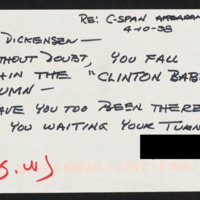 RE: C-SPAN APPEARAN
4-10-98
DICKENSEN —
HOUT DOUBT, YOU FALL
HIN THE "CLINTON BABE
UMN —
AVE YOU TOO BEEN THERE
YOU WAITING YOUR TURN